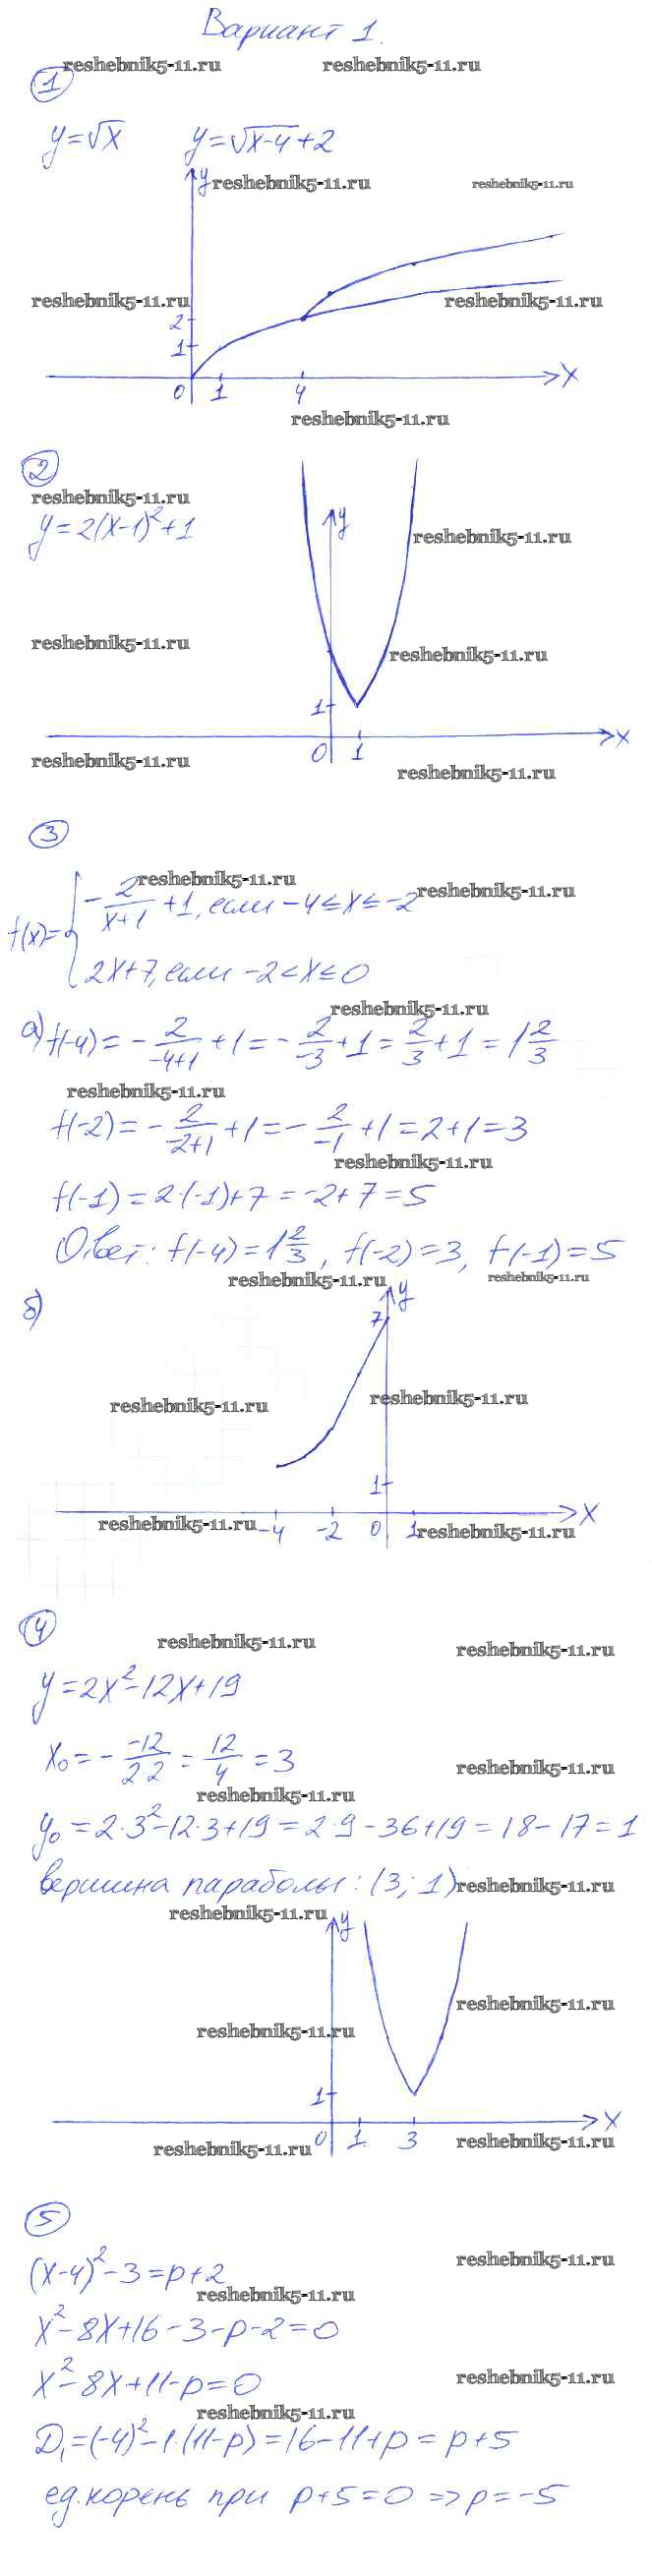 Вариант 1.
reshebnik5-11.ru reshebnik5-11.ru
1
y=√x y=√(x-4)+2
y
reshebnik5-11.ru reshebnik5-11.ru
reshebnik5-11.ru reshebnik5-11.ru
2
1
0 1 4 x
reshebnik5-11.ru
2
reshebnik5-11.ru
y=2(x-1)²+1
y
reshebnik5-11.ru
reshebnik5-11.ru
reshebnik5-11.ru
1
0 1 x
reshebnik5-11.ru
reshebnik5-11.ru
3
reshebnik5-11.ru
reshebnik5-11.ru
f(x)={ -2/(x+1) +1, если -4≤x≤-2
2x+7, если -2<x≤0
reshebnik5-11.ru
а) f(-4)= -2/(-4+1) +1= -2/(-3) +1= 2/3 +1= 1 2/3
reshebnik5-11.ru
f(-2)= -2/(-2+1) +1= -2/(-1) +1=2+1=3
reshebnik5-11.ru
f(-1)=2·(-1)+7=-2+7=5
Ответ: f(-4)=1 2/3, f(-2)=3, f(-1)=5
reshebnik5-11.ru reshebnik5-11.ru
б)
y
7
reshebnik5-11.ru
reshebnik5-11.ru
1
reshebnik5-11.ru
-4 -2 0 1 x
reshebnik5-11.ru
4
reshebnik5-11.ru
reshebnik5-11.ru
y=2x²-12x+19
x₀= - -12/(2·2) = 12/4 =3
reshebnik5-11.ru
reshebnik5-11.ru
y₀=2·3²-12·3+19=2·9-36+19=18-17=1
вершина параболы: (3; 1)
reshebnik5-11.ru
reshebnik5-11.ru
y
reshebnik5-11.ru
reshebnik5-11.ru
1
0 1 3 x
reshebnik5-11.ru
reshebnik5-11.ru
5
reshebnik5-11.ru
(x-4)²-3=p+2
reshebnik5-11.ru
x²-8x+16-3-p-2=0
x²-8x+11-p=0
reshebnik5-11.ru
reshebnik5-11.ru
D₁=(-4)²-1·(11-p)=16-11+p=p+5
ед. корень при p+5=0 => p=-5